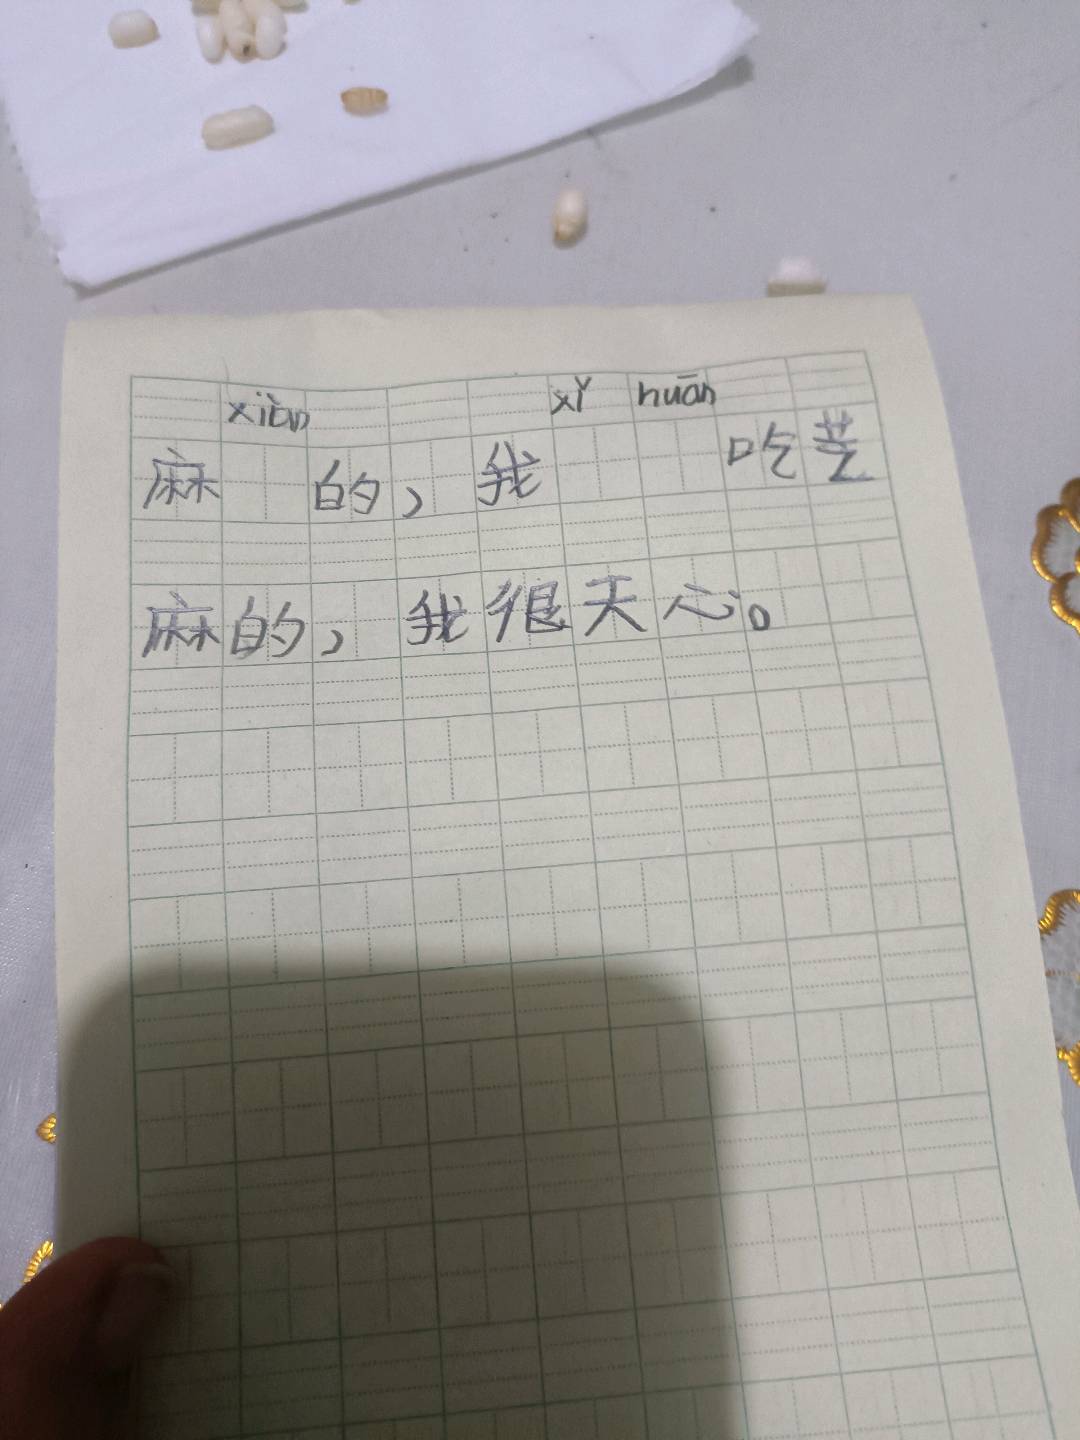 xiàn xǐ huān
麻 的，我 吃芝
麻的，我很天心。